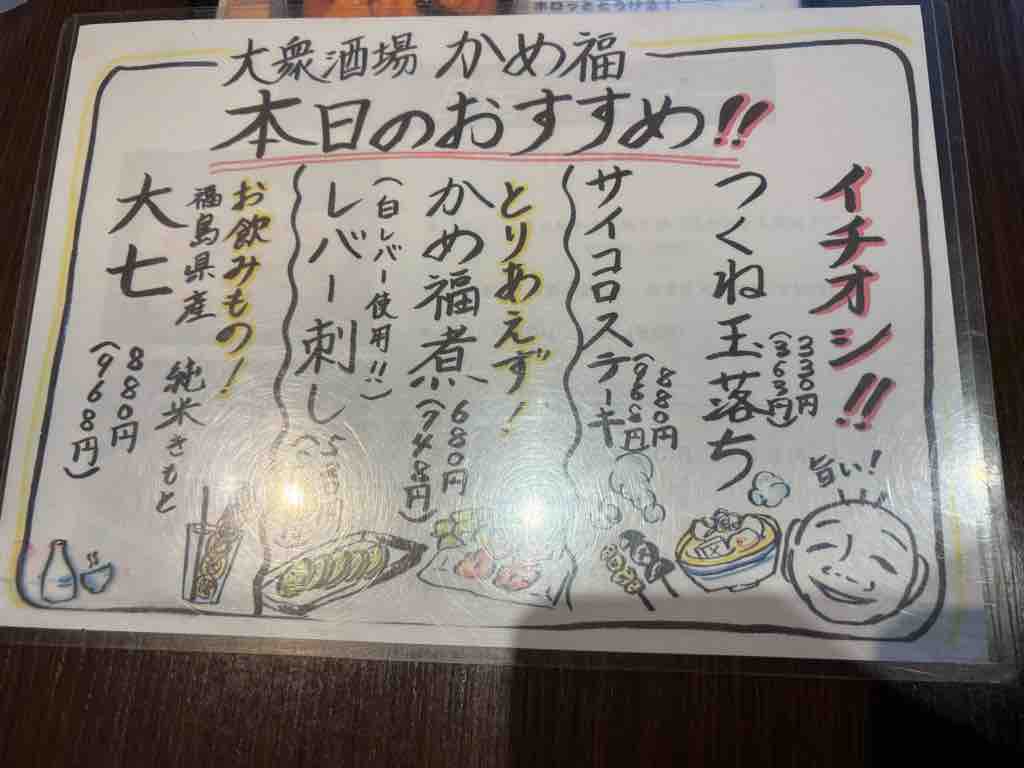 大衆酒場 かめ福
本日のおすすめ!!
イチオシ!!
つくね玉落ち
330円
(363円)
サイコロステーキ
880円
(968円)
とりあえず!
かめ福煮
680円
(748円)
(白レバー使用!!)
レバー刺し
お飲みもの!
福島県産
純米きもと
大七
880円
(968円)
旨い!